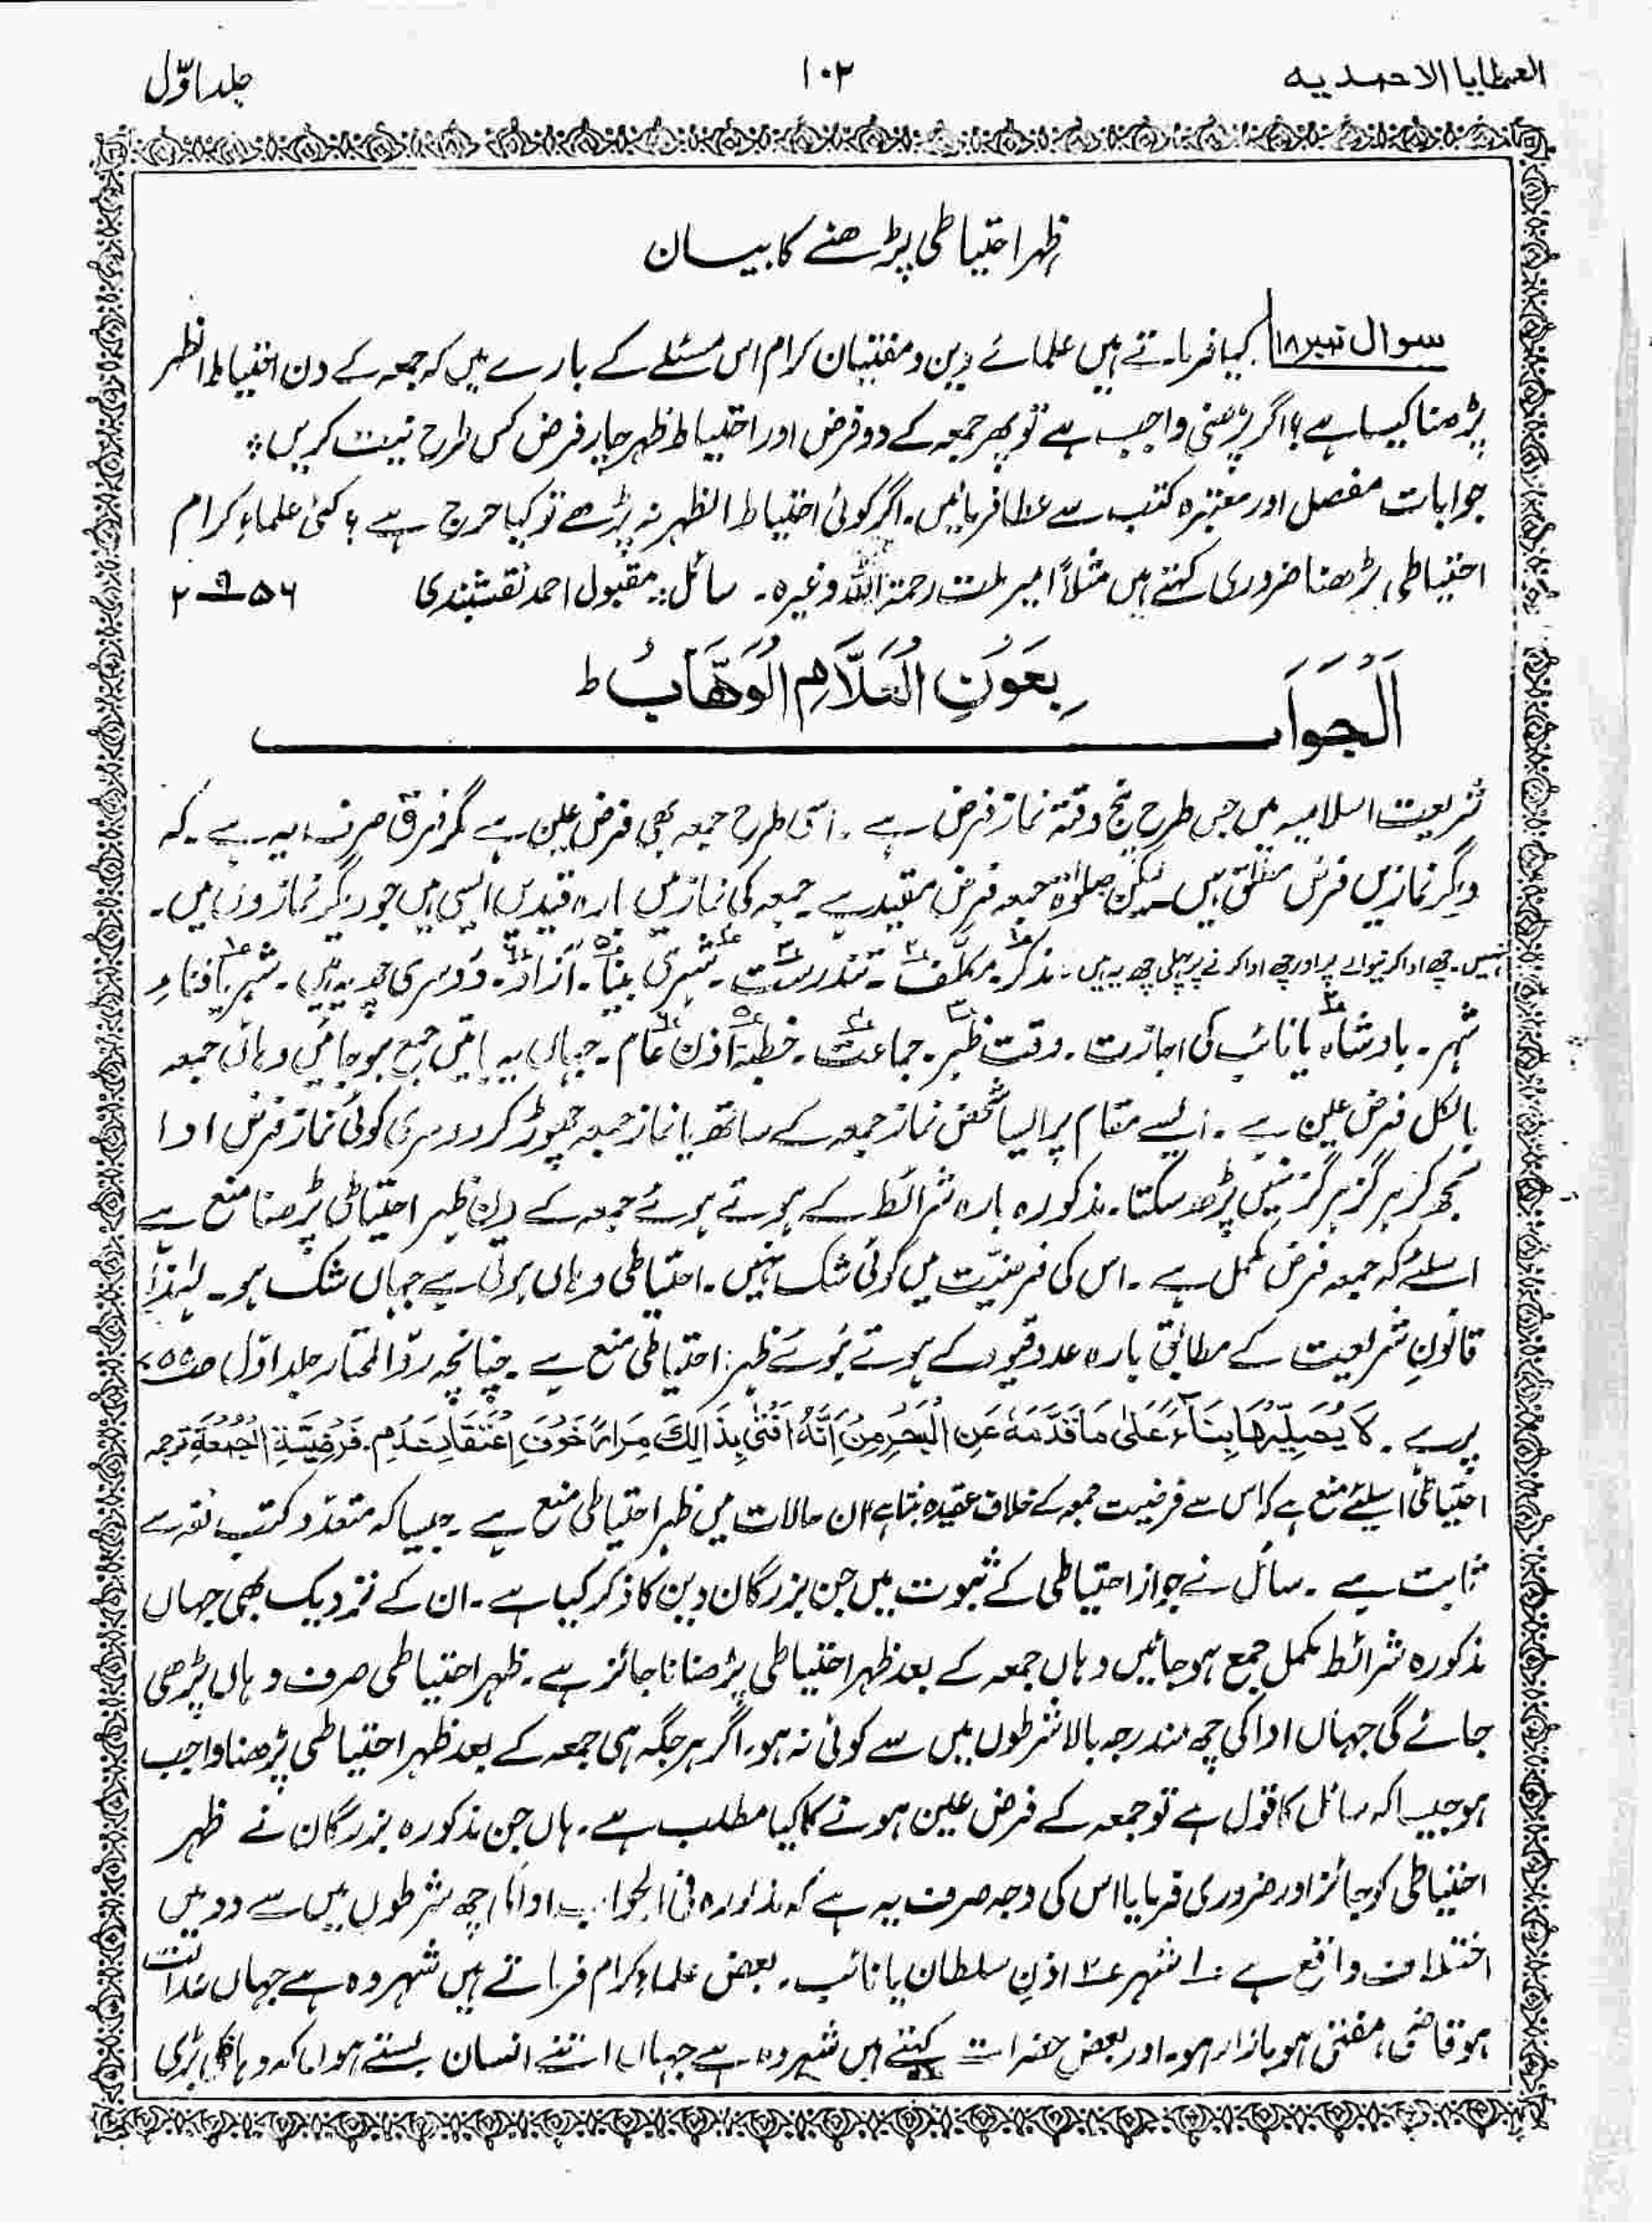 العطایا الاحمدیہ
۱۰۲
جلد اوّل
ظہر احتیاطی پڑھنے کا بیان
سوال نمبر ۱۸ کیا فرماتے ہیں علمائے دین و مفتیان کرام اس مسئلے کے بارے میں کہ جمعہ کے دن احتیاط الظہر
پڑھنا کیسا ہے؟ اگر پڑھنی واجب ہے تو پھر جمعہ کے دو فرض اور احتیاط ظہر چار فرض کس طرح نیت کریں
جوابات مفصل اور معتبرہ کتب سے عطا فرمائیں۔ اگر کوئی احتیاط الظہر نہ پڑھے تو کیا حرج ہے؟ کئی علماءِ کرام
احتیاطی پڑھنا ضروری کہتے ہیں مثلاً امیر ملت رحمۃ اللہ وغیرہ۔ سائل: مقبول احمد نقشبندی ۵۶-۹-۲
اَلْجَوَاب
بِعَوْنِ الْعَلَّامِ الْوَھَّابُ ط
شریعت اسلامیہ میں جس طرح پنج وقتہ نماز فرض ہے۔ اسی طرح جمعہ بھی فرض عین ہے مگر فرق صرف یہ ہے۔ کہ
دیگر نمازیں فرض مطلق ہیں۔ لیکن صلوٰۃ جمعہ فرض مقید ہے۔ جمعہ کی نماز میں بارہ قیدیں ایسی ہیں جو دیگر نمازوں میں۔
نہیں۔ چھ ادا کرنیوالے پر اور چھ ادا کرنے پر پہلی چھ یہ ہیں: مذکر ۱؎۔ مکلّف ۲؎۔ تندرست ۳؎۔ شہری ۴؎۔ بینا ۵؎۔ آزاد ۶؎۔ دوسری چھ یہ ہیں۔ شہر ۱؎ یا فناءِ
شہر۔ بادشاہ ۲؎ یا نائب کی اجازت۔ وقت ظہر ۳؎۔ جماعت ۴؎۔ خطبہ ۵؎۔ اذن عام ۶؎۔ جہاں یہ باتیں جمع ہو جائیں وہاں جمعہ
بالکل فرض عین ہے۔ ایسے مقام پر ایسا شخص نماز جمعہ کے ساتھ یا نماز جمعہ چھوڑ کر دوسری کوئی نماز فرض ادا
سمجھ کر ہرگز ہرگز نہیں پڑھ سکتا۔ مذکورہ بارہ شرائط کے ہوتے ہوئے جمعہ کے دن ظہر احتیاطی پڑھنا منع ہے
اسلئے کہ جمعہ فرض مکمل ہے۔ اس کی فرضیّت میں کوئی شک نہیں۔ احتیاطی وہاں ہوتی ہے جہاں شک ہو۔ لہٰذا
قانونِ شریعت کے مطابق بارہ عدد قیود کے ہوتے ہُوئے ظہر احتیاطی منع ہے۔ چنانچہ ردّ المحتار جلد اوّل ص
پر ہے۔ لَا یُصَلِّیْہَا بِنَاءً عَلٰی مَا قَدَّمَہٗ عَنِ الْبَحْرِ مِنْ اَنَّہٗ اَفْتٰی بِذَالِکَ مِرَارًا خَوْفَ اِعْتِقَادِ عَدَمِ۔ فَرْضِیَّۃِ الْجُمُعَۃِ ترجمہ
احتیاطی اسلئے منع ہے کہ اس سے فرضیت جمعہ کے خلاف عقیدہ بنتا ہے ان حالات میں ظہر احتیاطی منع ہے۔ جیسا کہ متعدّد کتب فقہ سے
ثابت ہے۔ سائل نے جواز احتیاطی کے ثبوت میں جن بزرگان دین کا ذکر کیا ہے۔ ان کے نزدیک بھی جہاں
مذکورہ شرائط مکمل جمع ہو جائیں وہاں جمعہ کے بعد ظہر احتیاطی پڑھنا ناجائز ہے۔ ظہر احتیاطی صرف وہاں پڑھی
جائے گی جہاں ادا کی چھ مندرجہ بالا شرطوں میں سے کوئی نہ ہو۔ اگر ہر جگہ ہی جمعہ کے بعد ظہر احتیاطی پڑھنا واجب
ہو جیسا کہ سائل کا قول ہے تو جمعہ کے فرض عین ہونے کا کیا مطلب ہے۔ ہاں جن مذکورہ بزرگان نے ظہر
احتیاطی کو جائز اور ضروری فرمایا اس کی وجہ صرف یہ ہے کہ مذکورہ فی الجواب ادا کی چھ شرطوں میں سے دو میں
اختلاف واقع ہے ۱؎ شہر ۲؎ اذنِ سلطان یا نائب۔ بعض علماءِ کرام فرماتے ہیں شہر وہ ہے جہاں عدالت
ہو قاضی، مفتی ہو بازار ہو۔ اور بعض حضرات کہتے ہیں شہر وہ ہے جہاں اتنے انسان بستے ہوں کہ وہاں کی بڑی